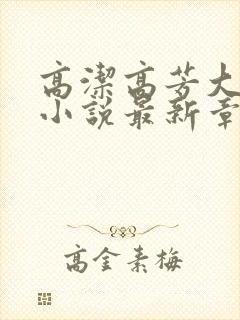 高潔高芳大
小說最新章
高金素梅